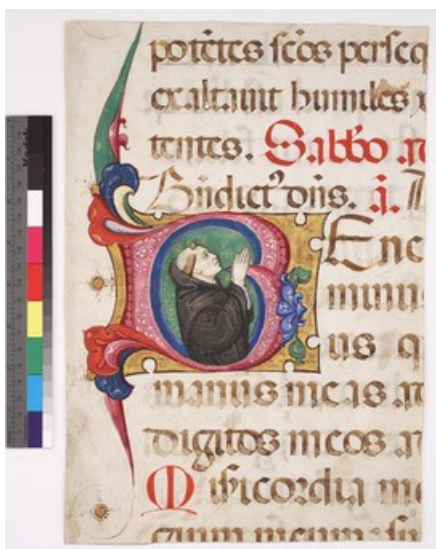 potētes scōs perseq
exaltauit humiles
tentes. Sabbō
Bn̄dict᷒ dn̄s. ā.
Enc
minus
us q
manus meas a
digitos meos a
Misicordia me